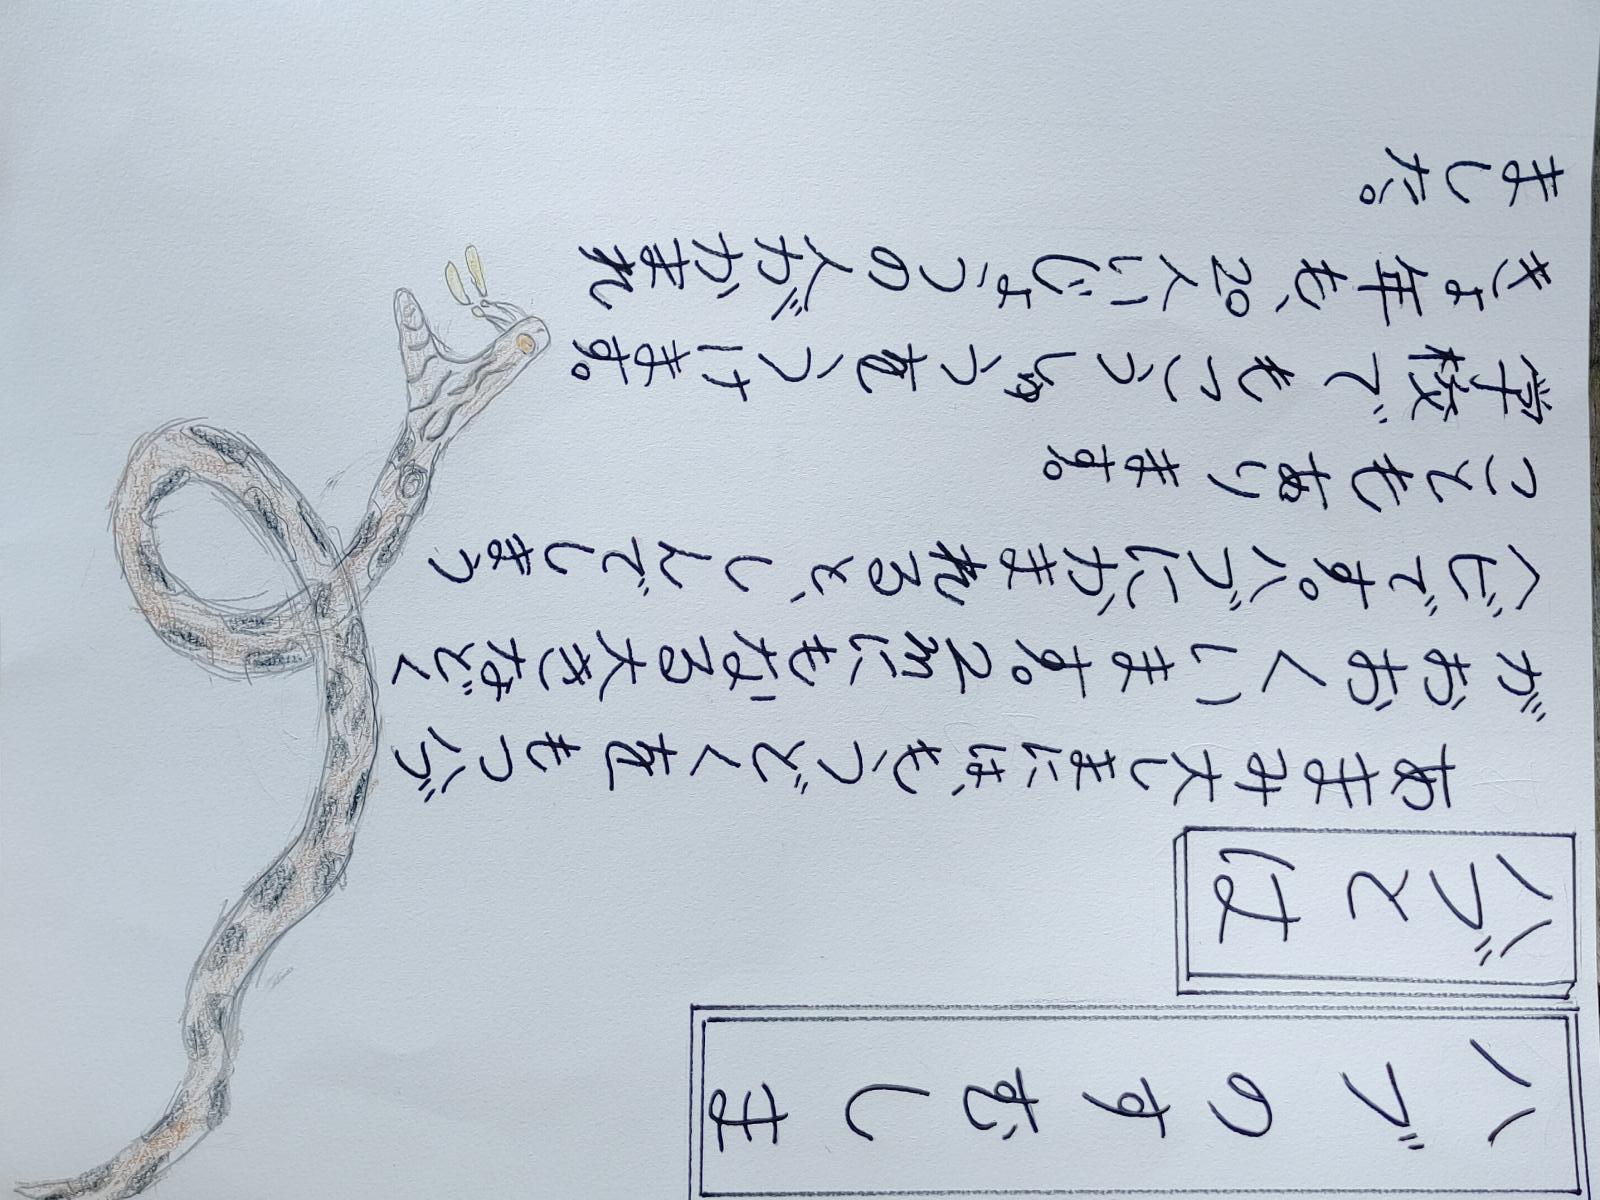 ハブのすむしま
ハブとは
あまみ大しまには、もうどくをもつハブ
がおおくいます。2mにもなる大きなどく
ヘビです。ハブにかまれると、しんでしまう
こともあります。
学校でもこうしゅうをうけます。
きょ年も、20人いじょうの人がかまれ
ました。